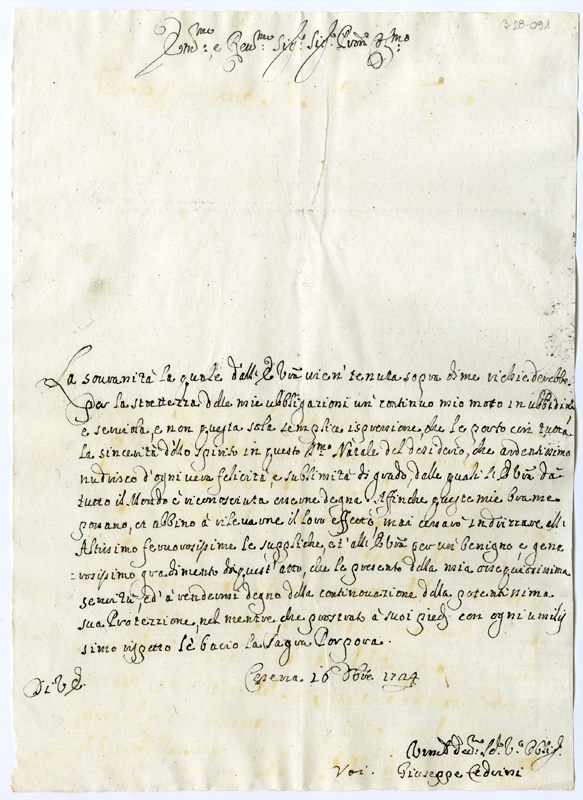 3-28-091
Em.mo e Rev.mo Sig.r Sig.r Pron Col.mo
La sovranità la quale dall' E. Vrã vien' tenuta sopra di me richiederebbe
per la strettezza delle mie ubbligazioni un' continuo mio moto in ubbidirla
e servirla, e non questa sola semplice espressione, che le porto con tutta
la sincerità dello spirito in questo SS.mo Natale del desiderio, che ardentissimo
nutrisco d'ogni vera felicità e sublimità di grado, delle quali l'E. Vrã da
tutto il Mondo è riconosciuta esserne degna. Affinche queste mie brame
possano, et abbino à rilevarne il loro effetto, mai cessarò indrizzare all'
Altissimo fervorosissime le suppliche, et all' E. Vrã per un' benigno e gene
rosissimo gradimento di quest' atto, che le presento della mia ossequiosissima
servitù, ed' à rendermi degno della continovazione della potentissima
sua Protezzione, nel mentre che prostrato à suoi piedi con ogni umilis
simo rispetto le bacio la Sagra Porpora.
Di V. E.
Cesena 16 Dbre. 1724
Giuseppe